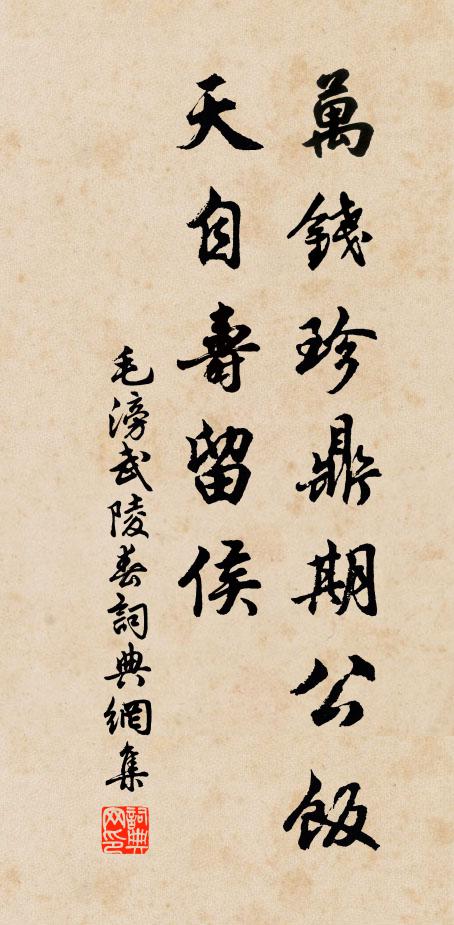 萬錢珍鼎期公飯
天自壽留侯
毛滂武陵春詞典網集
詞典网印